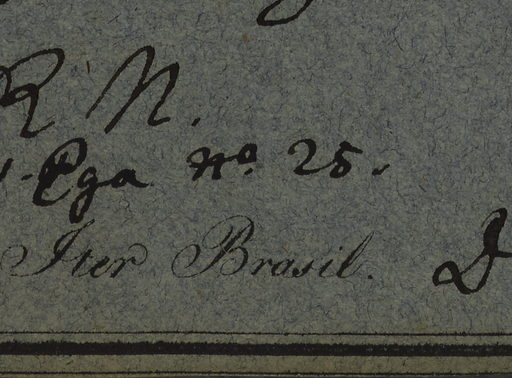 R N.
Ega no. 25.
Iter Brasil. D